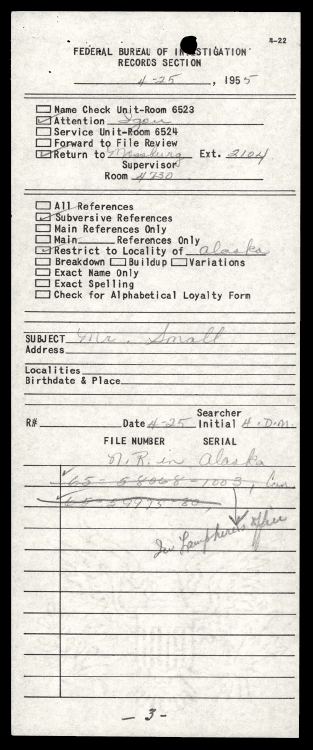 4-22
FEDERAL BUREAU OF INVESTIGATION
RECORDS SECTION
4-25, 1955
Name Check Unit-Room 6523
Attention
Service Unit-Room 6524
Forward to File Review
Return to Ext. 2104
Supervisor
Room 4730
All References
Subversive References
Main References Only
Main References Only
Restrict to Locality of Alaska
Breakdown Buildup Variations
Exact Name Only
Exact Spelling
Check for Alphabetical Loyalty Form
SUBJECT Mr. Small
Address
Localities
Birthdate & Place
R# Date 4-25 Searcher Initial H.D.M.
FILE NUMBER SERIAL
N.R. in Alaska
65-58068-1003,
65-59975-80,
In Lamphere's office
- 3 -